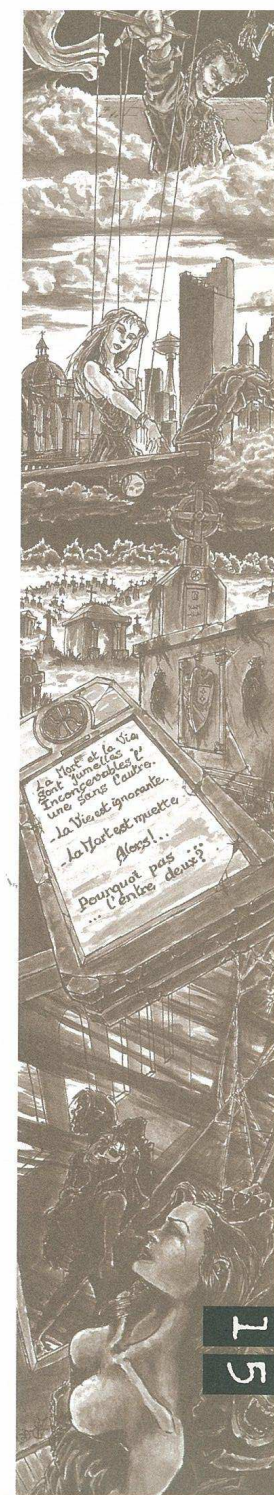 La Mort et la Vie
sont jumelles
Inconcevables l'
une sans l'autre.
La Vie est ignorante
La Mort est muette
Alors!..
Pourquoi pas ...
... l'entre deux?
15